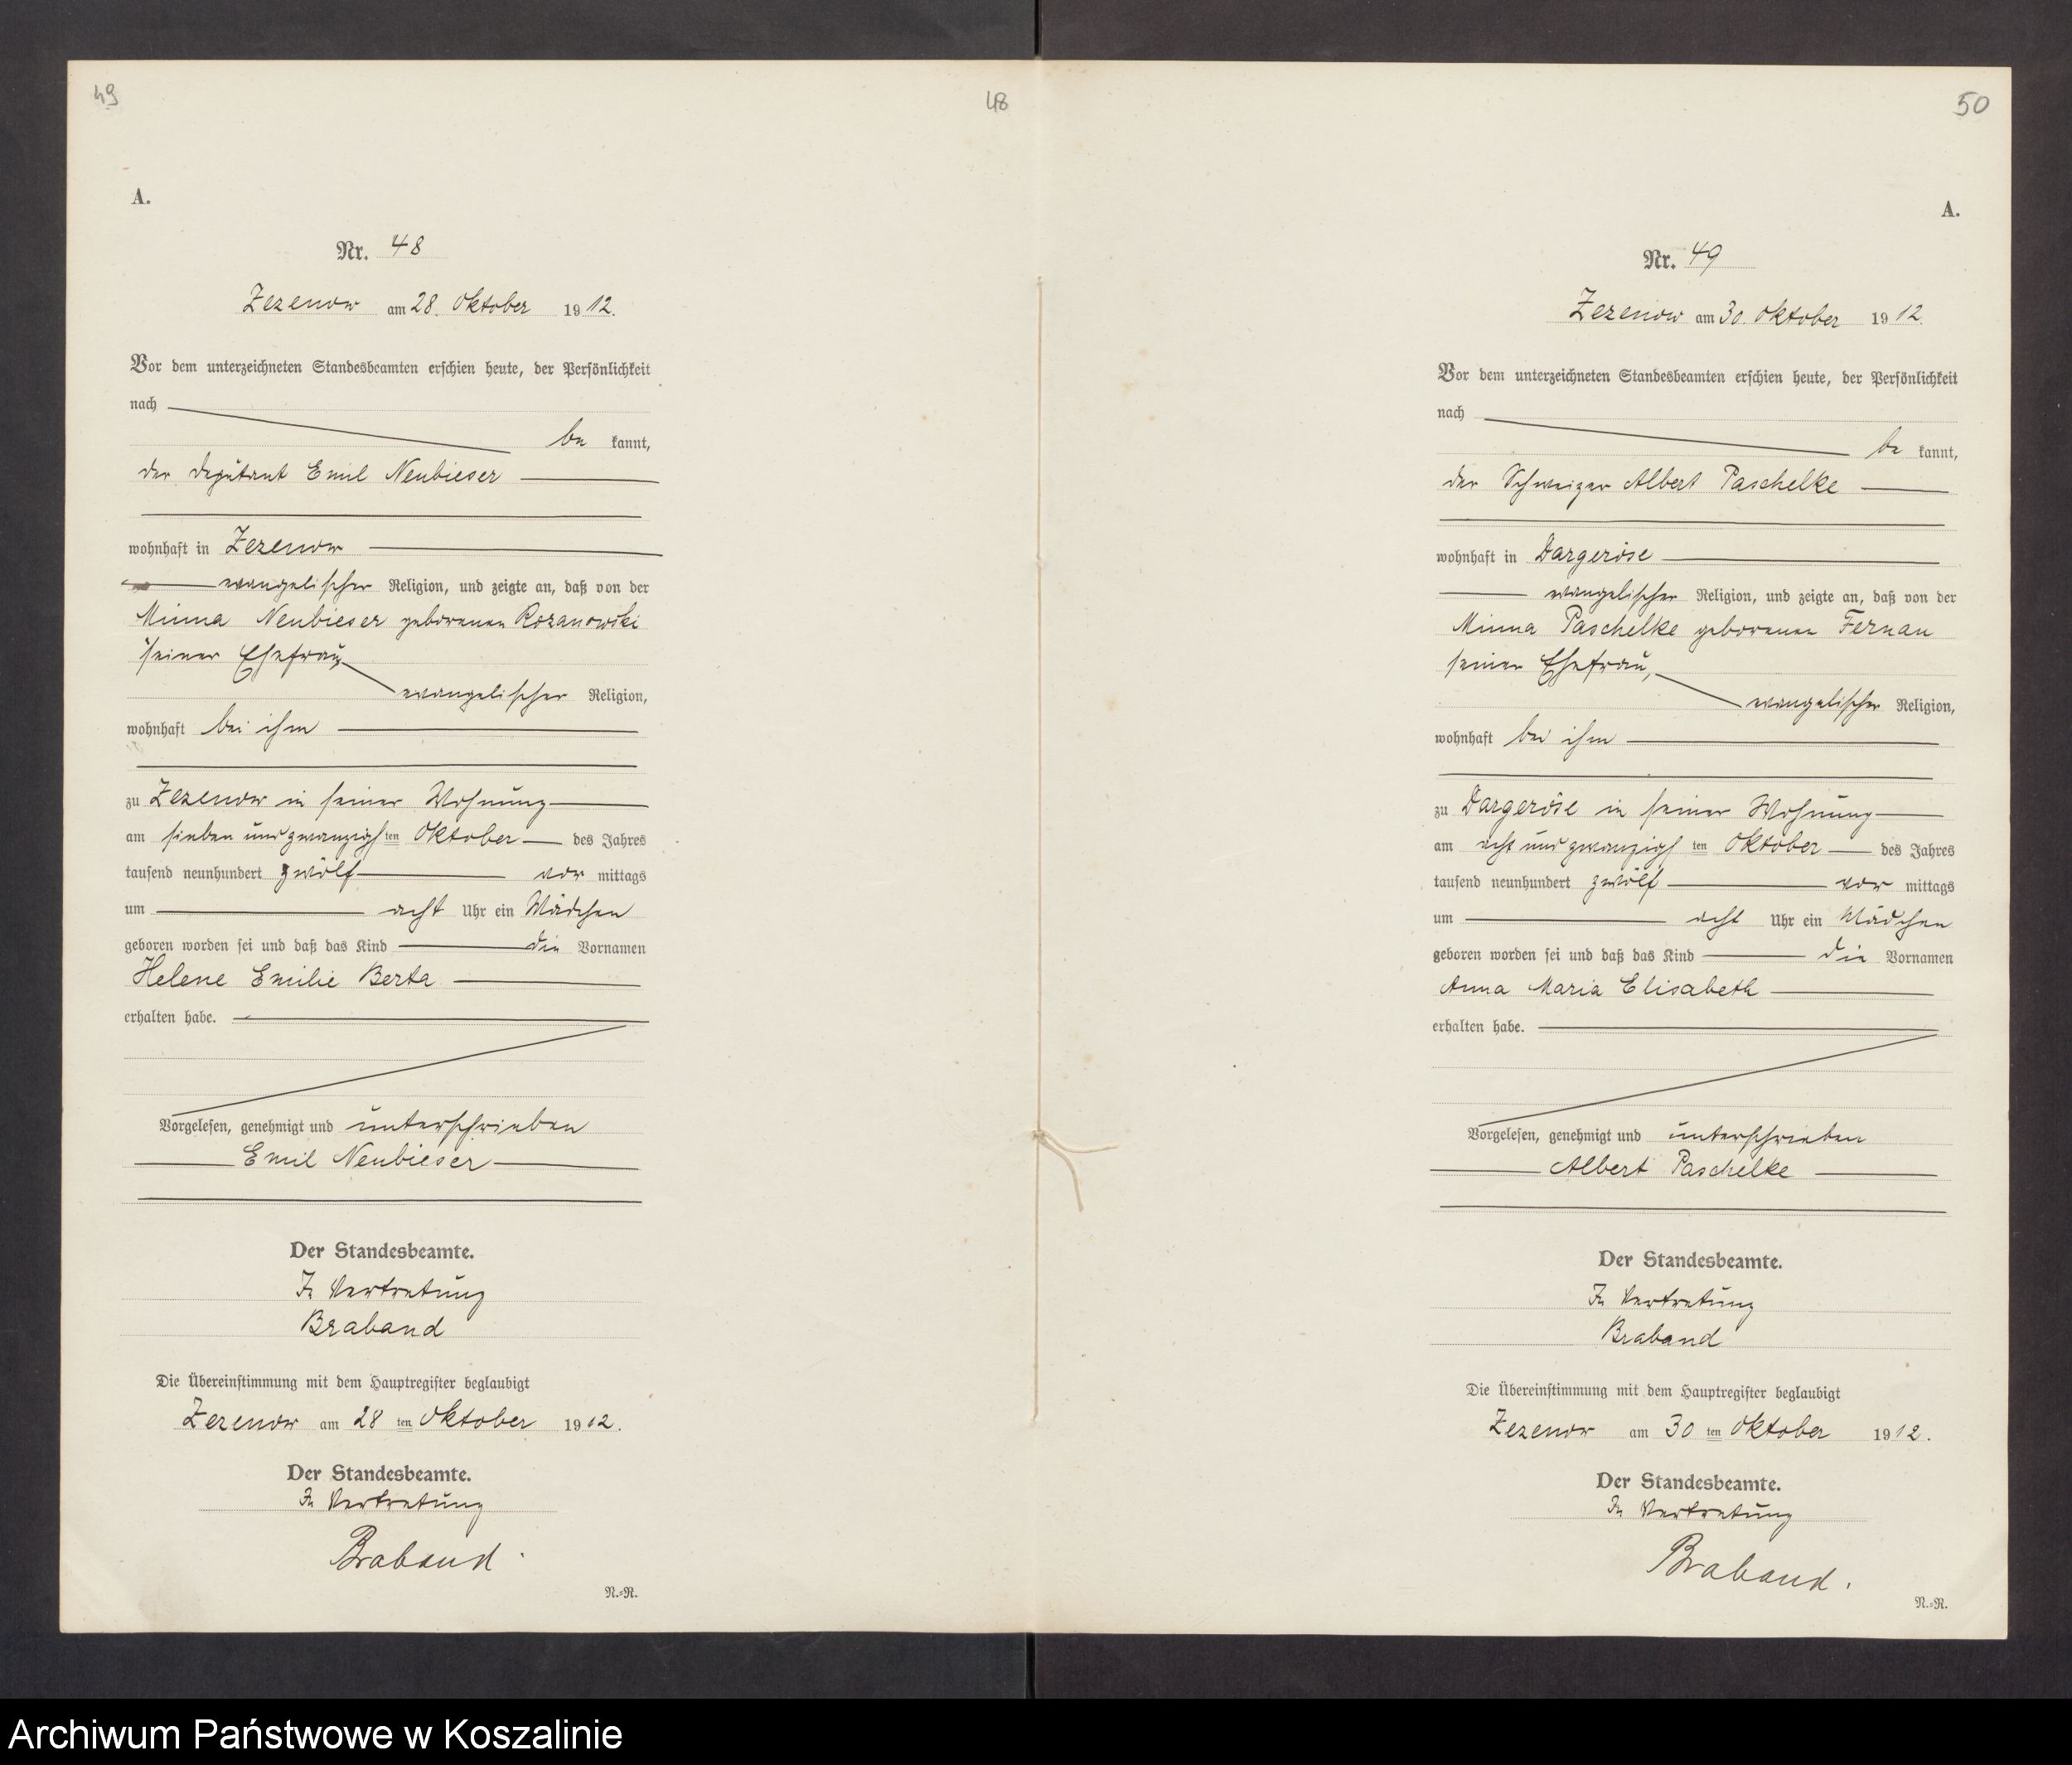 49
48
A.
Nr. 48
Zezenow am 28. Oktober 1912.
Vor dem unterzeichneten Standesbeamten erschien heute, der Persönlichkeit
nach
be kannt,
der Deputant Emil Neubieser
wohnhaft in Zezenow
evangelischer Religion, und zeigte an, daß von der
Minna Neubieser geborenen Rozanowski
seiner Ehefrau,
evangelischer Religion,
wohnhaft bei ihm
zu Zezenow in seiner Wohnung
am sieben und zwanzigsten Oktober des Jahres
tausend neunhundert zwölf vor mittags
um acht Uhr ein Mädchen
geboren worden sei und daß das Kind die Vornamen
Helene Emilie Berta
erhalten habe.
Vorgelesen, genehmigt und unterschrieben
Emil Neubieser
Der Standesbeamte.
In Vertretung
Braband
Die Übereinstimmung mit dem Hauptregister beglaubigt
Zezenow am 28 ten Oktober 1912.
Der Standesbeamte.
In Vertretung
Braband.
N.=R.
50
A.
Nr. 49
Zezenow am 30. Oktober 1912.
Vor dem unterzeichneten Standesbeamten erschien heute, der Persönlichkeit
nach
be kannt,
der Schweizer Albert Paschelke
wohnhaft in Dargeröse
evangelischer Religion, und zeigte an, daß von der
Minna Paschelke geborenen Fernau
seiner Ehefrau,
evangelischer Religion,
wohnhaft bei ihm
zu Dargeröse in seiner Wohnung
am acht und zwanzigsten Oktober des Jahres
tausend neunhundert zwölf vor mittags
um acht Uhr ein Mädchen
geboren worden sei und daß das Kind die Vornamen
Anna Maria Elisabeth
erhalten habe.
Vorgelesen, genehmigt und unterschrieben
Albert Paschelke
Der Standesbeamte.
In Vertretung
Braband
Die Übereinstimmung mit dem Hauptregister beglaubigt
Zezenow am 30 ten Oktober 1912.
Der Standesbeamte.
In Vertretung
Braband.
N.=R.
Archiwum Państwowe w Koszalinie